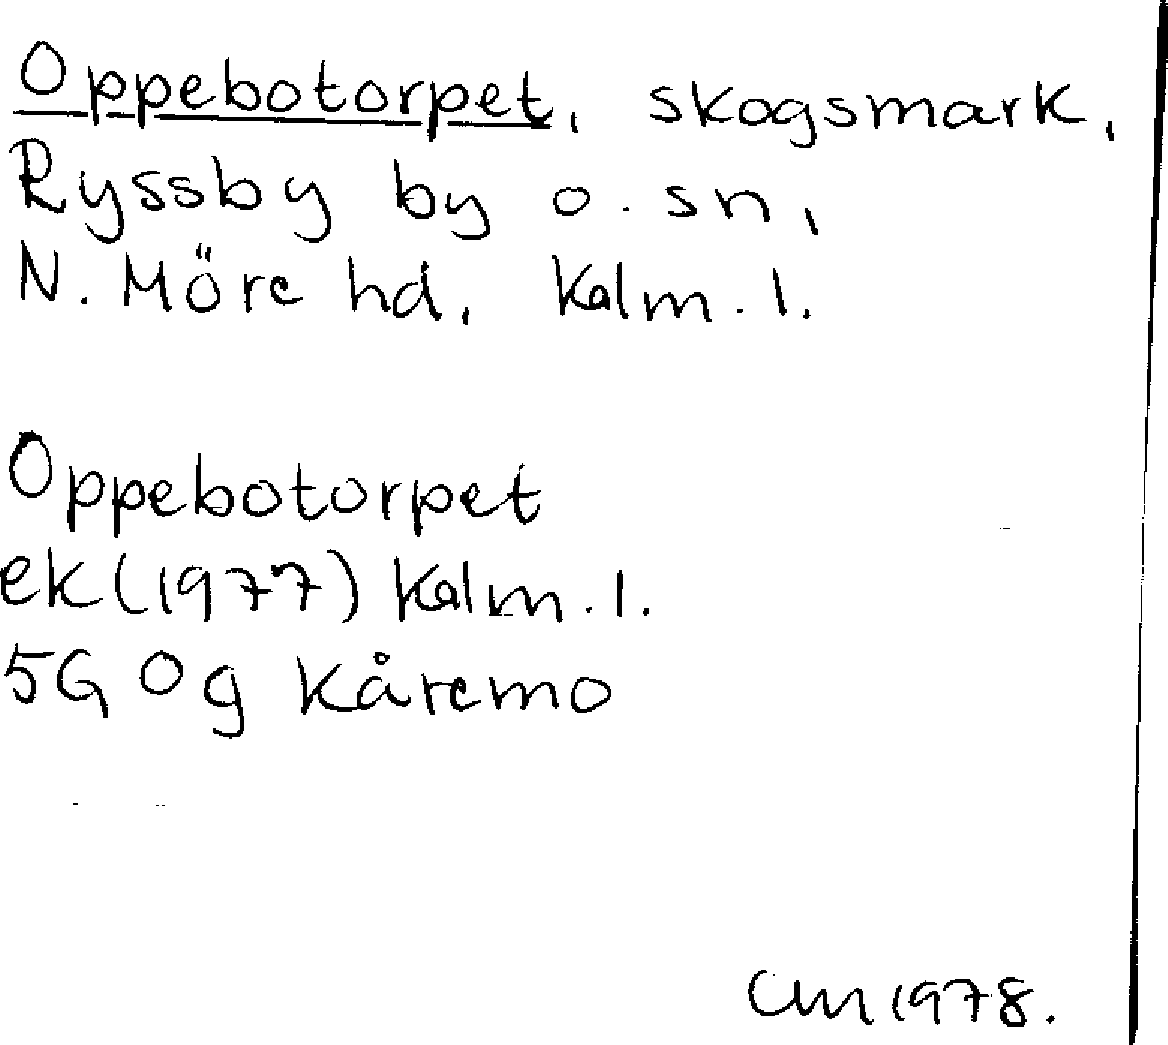 Oppebotorpet, skogsmark,
Ryssby by o. sn,
N. Möre hd, Kalm. l.
Oppebotorpet
ek (1977) Kalm. l.
5G 0g Kåremo
CM 1978.